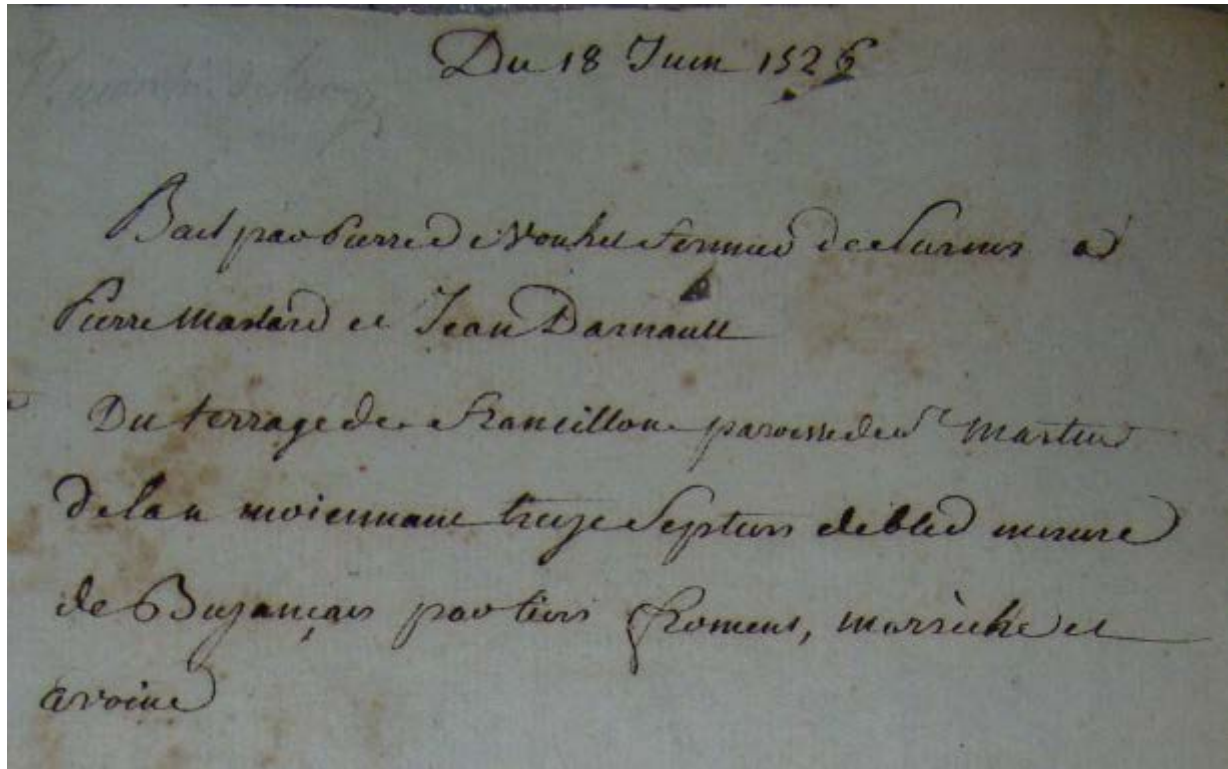 Du 18 Juin 1526
Bail par Pierre de Vouhet fermier de à
Pierre Mastard et Jean Darnault
Du terrage de francillon paroisse de St Martin
de lan moiennant treize septiers de bled mesure
de Buzançais par tiers froment, marsèche et
avoine